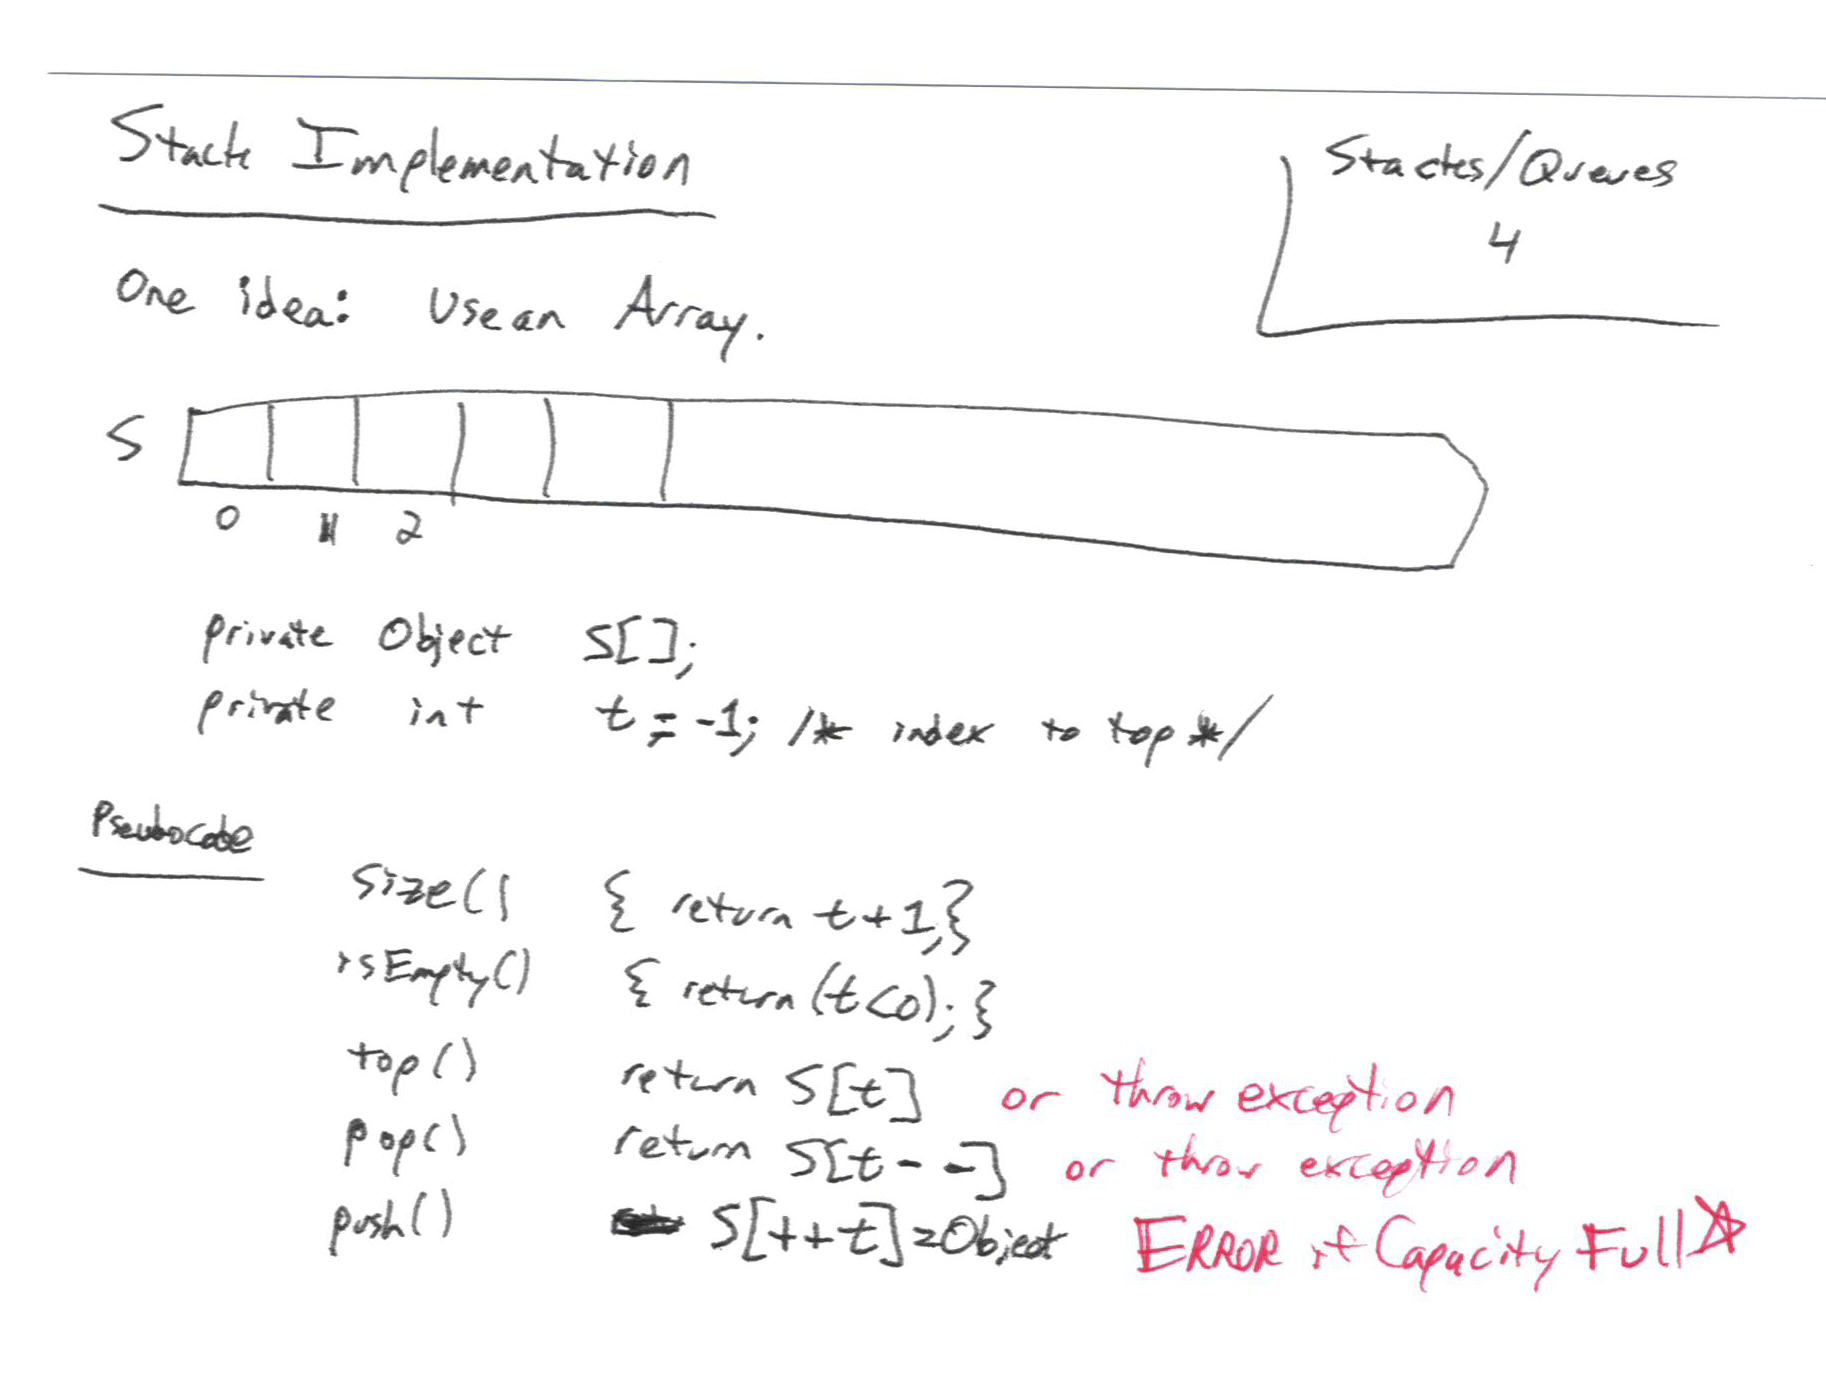 Stack Implementation
Stacks/Queues
4
One idea: Use an Array.
S
0 1 2
private Object S[];
private int t = -1; /* index to top */
Pseudocode
size() { return t+1;}
isEmpty() { return (t<0); }
top() return S[t] or throw exception
pop() return S[t--] or throw exception
push() S[++t]=Object ERROR if Capacity Full